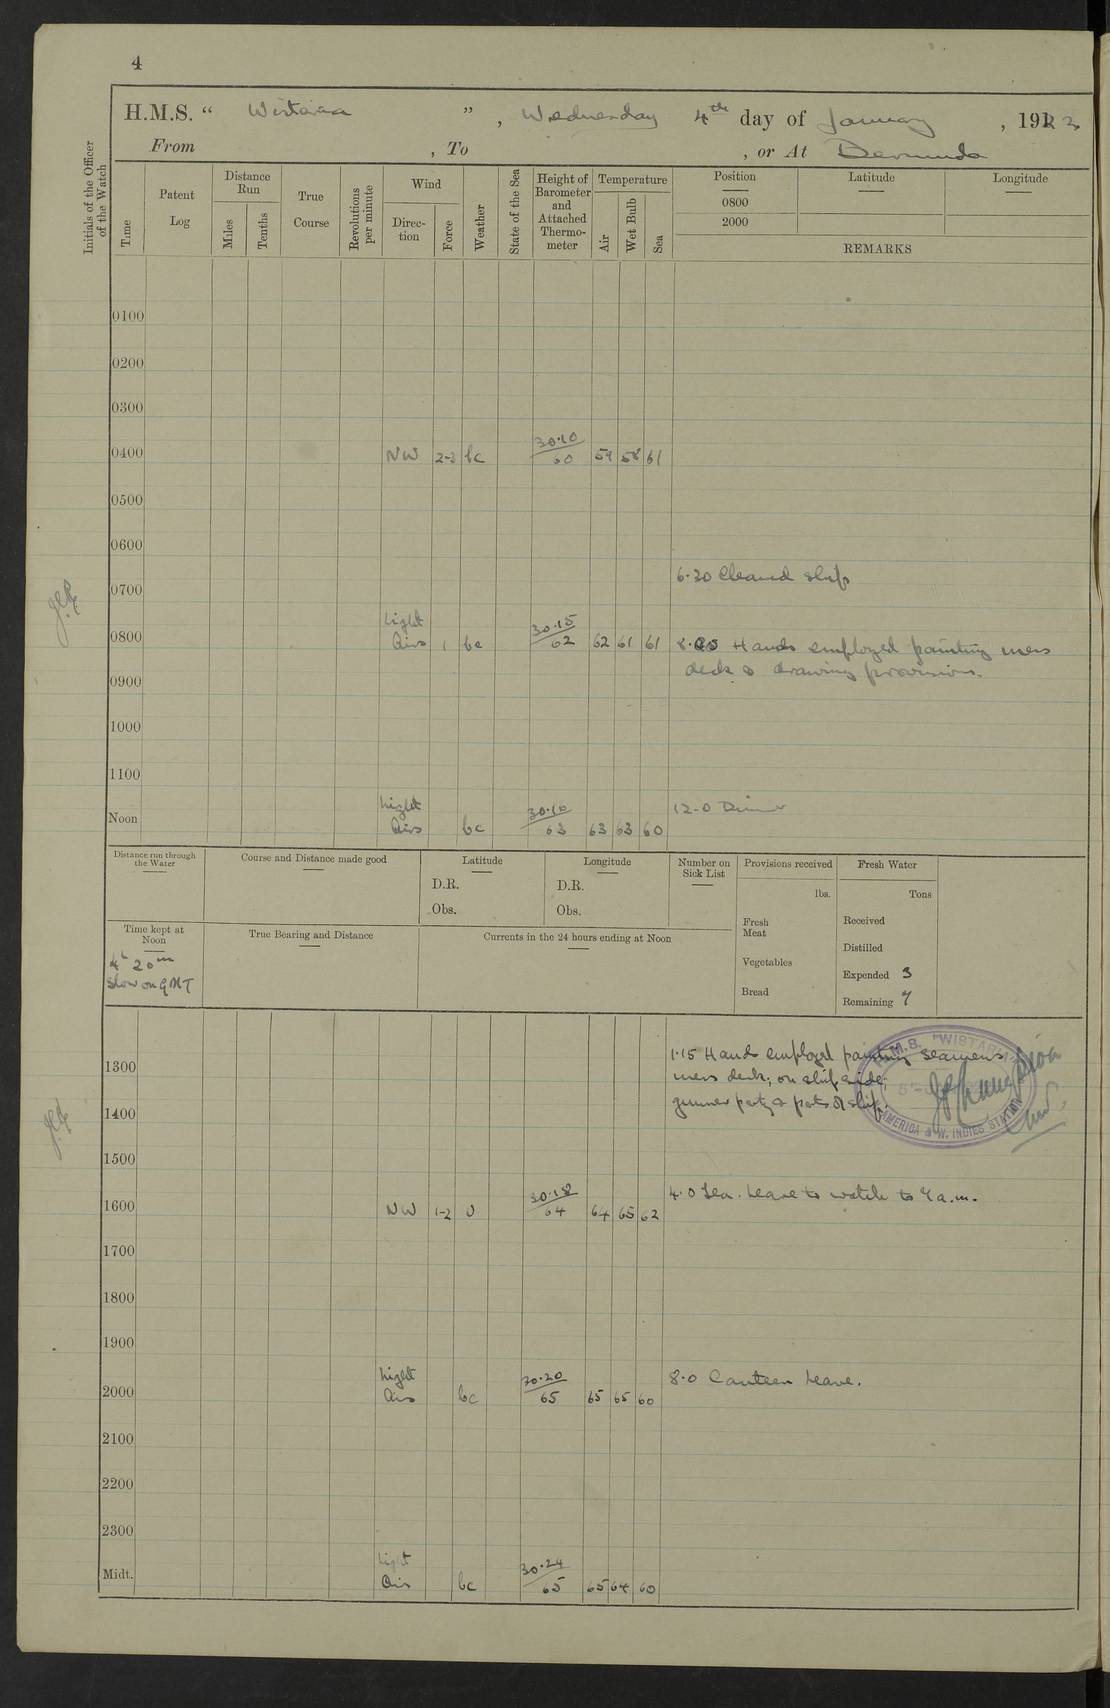 4
H.M.S. “ Wistaria ” , Wednesday 4th day of January , 1922
From , To , or At Bermuda
Initials of the Officer of the Watch
Time
Patent Log
Distance Run
Miles
Tenths
True Course
Revolutions per minute
Wind
Direc-tion
Force
Weather
State of the Sea
Height of Barometer and Attached Thermo-meter
Temperature
Air
Wet Bulb
Sea
Position
0800
2000
Latitude
Longitude
REMARKS
0100
0200
0300
0400 NW 2-3 bc 30.10 60 59 58 61
0500
0600
6.30 Cleaned ship
0700
0800 Light Airs 1 bc 30.15 62 62 61 61 Hands employed painting mess
deck & drawing provisions.
0900
1000
1100
12.0 Dinner
Noon Light Airs bc 30.16 63 63 63 60
Distance run through the Water
Course and Distance made good
Latitude
D.R.
Obs.
Longitude
D.R.
Obs.
Number on Sick List
Provisions received
lbs.
Fresh Meat
Vegetables
Bread
Fresh Water
Tons
Received
Distilled
Expended 3
Remaining 7
Time kept at Noon
4h 20m
Slow on GMT
True Bearing and Distance
Currents in the 24 hours ending at Noon
1.15 Hands employed painting seamens
mess deck, on ship side,
H.M.S. "WISTARIA"
AMERICA & W. INDIES STATION
1300
1400
1500
4.0 Leave to watch to 7 a.m.
1600 NW 1-2 o 30.18 64 64 65 62
1700
1800
1900
8.0 Canteen Leave.
2000 Light Airs bc 30.20 65 65 65 60
2100
2200
2300
Midt. Light Airs bc 30.24 65 65 64 60